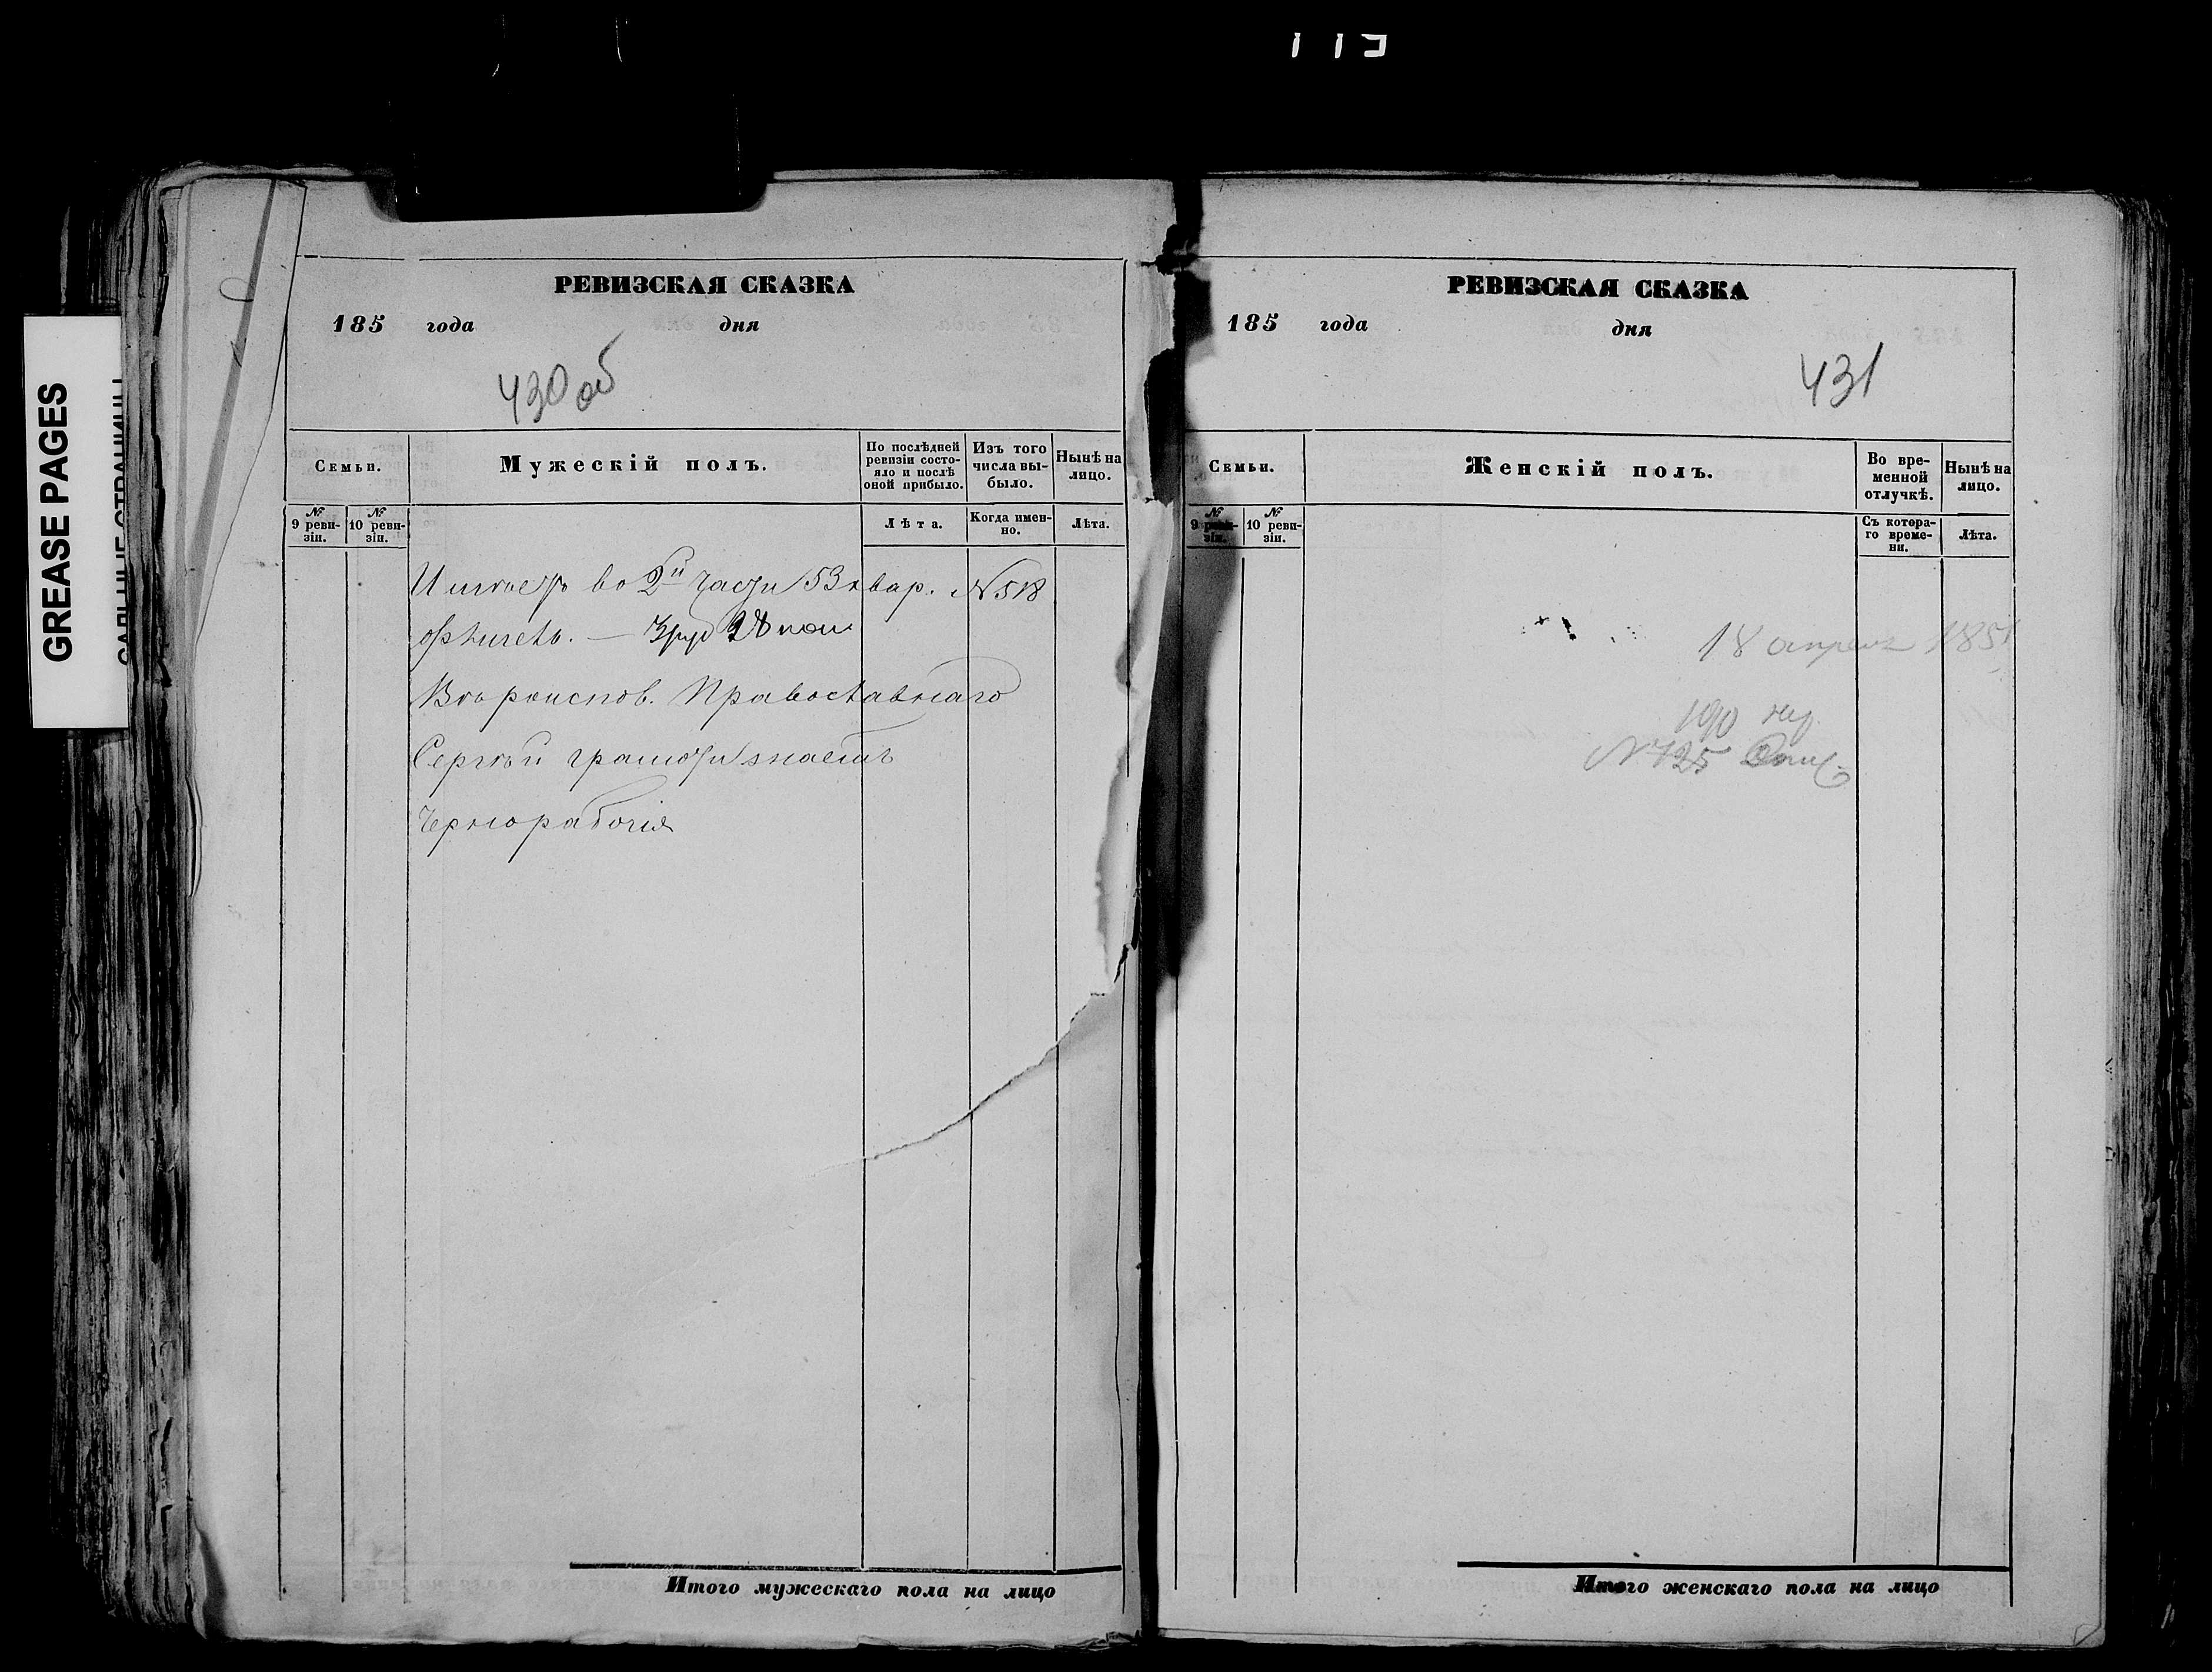 GREASE PAGES
РЕВИЗСКАЯ СКАЗКА
185 года дня
430 об
Семьи.
Мужескій полъ.
По послѣдней ревизіи состояло и послѣ оной прибыло.
Изъ того числа выбыло.
Нынѣ на лицо.
№ 9 ревизіи.
№ 10 ревизіи.
Лѣта.
Когда именно.
Лѣта.
Имѣетъ во 2й части 53 квар. №518
Вѣроиспов. Православнаго
Сергѣй грамоти знаетъ
Чернорабочія
Итого мужескаго пола на лицо
РЕВИЗСКАЯ СКАЗКА
185 года дня
431
Семьи.
Женскій полъ.
Во временной отлучкѣ.
Нынѣ на лицо.
№ 9 ревизіи.
№ 10 ревизіи.
Съ котораго времени.
Лѣта.
18 апреля 1851
190
№725
Итого женскаго пола на лицо